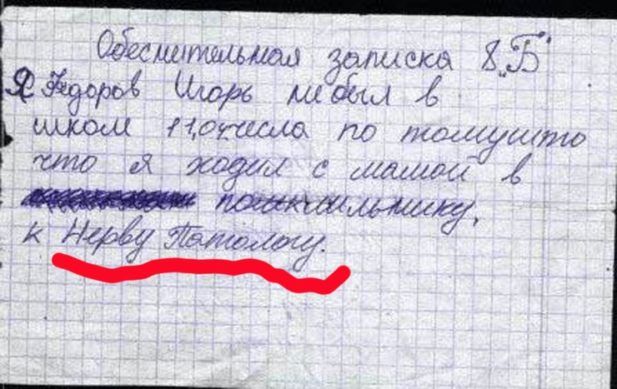 Обеснительная записка 8„Б"
Я Федоров Игорь небыл в
школ 11,04числа по томушто
что я ходил с мамой в
к Нерву Патологу.